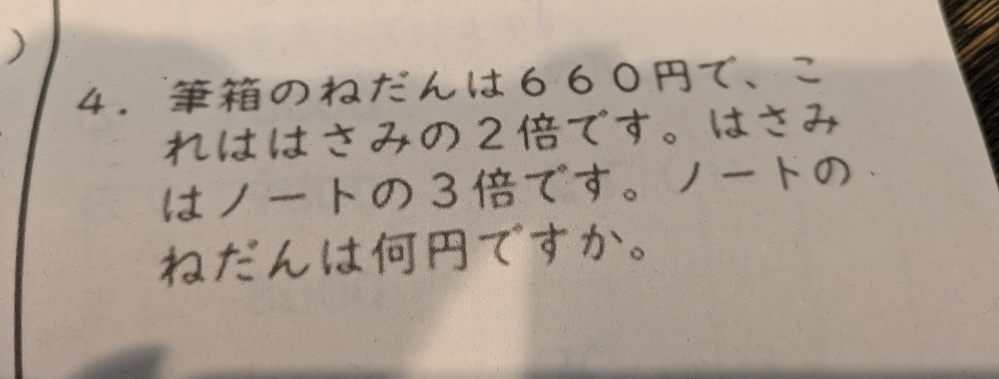 )
4. 筆箱のねだんは660円で、こ
れははさみの2倍です。はさみ
はノートの3倍です。ノートの
ねだんは何円ですか。